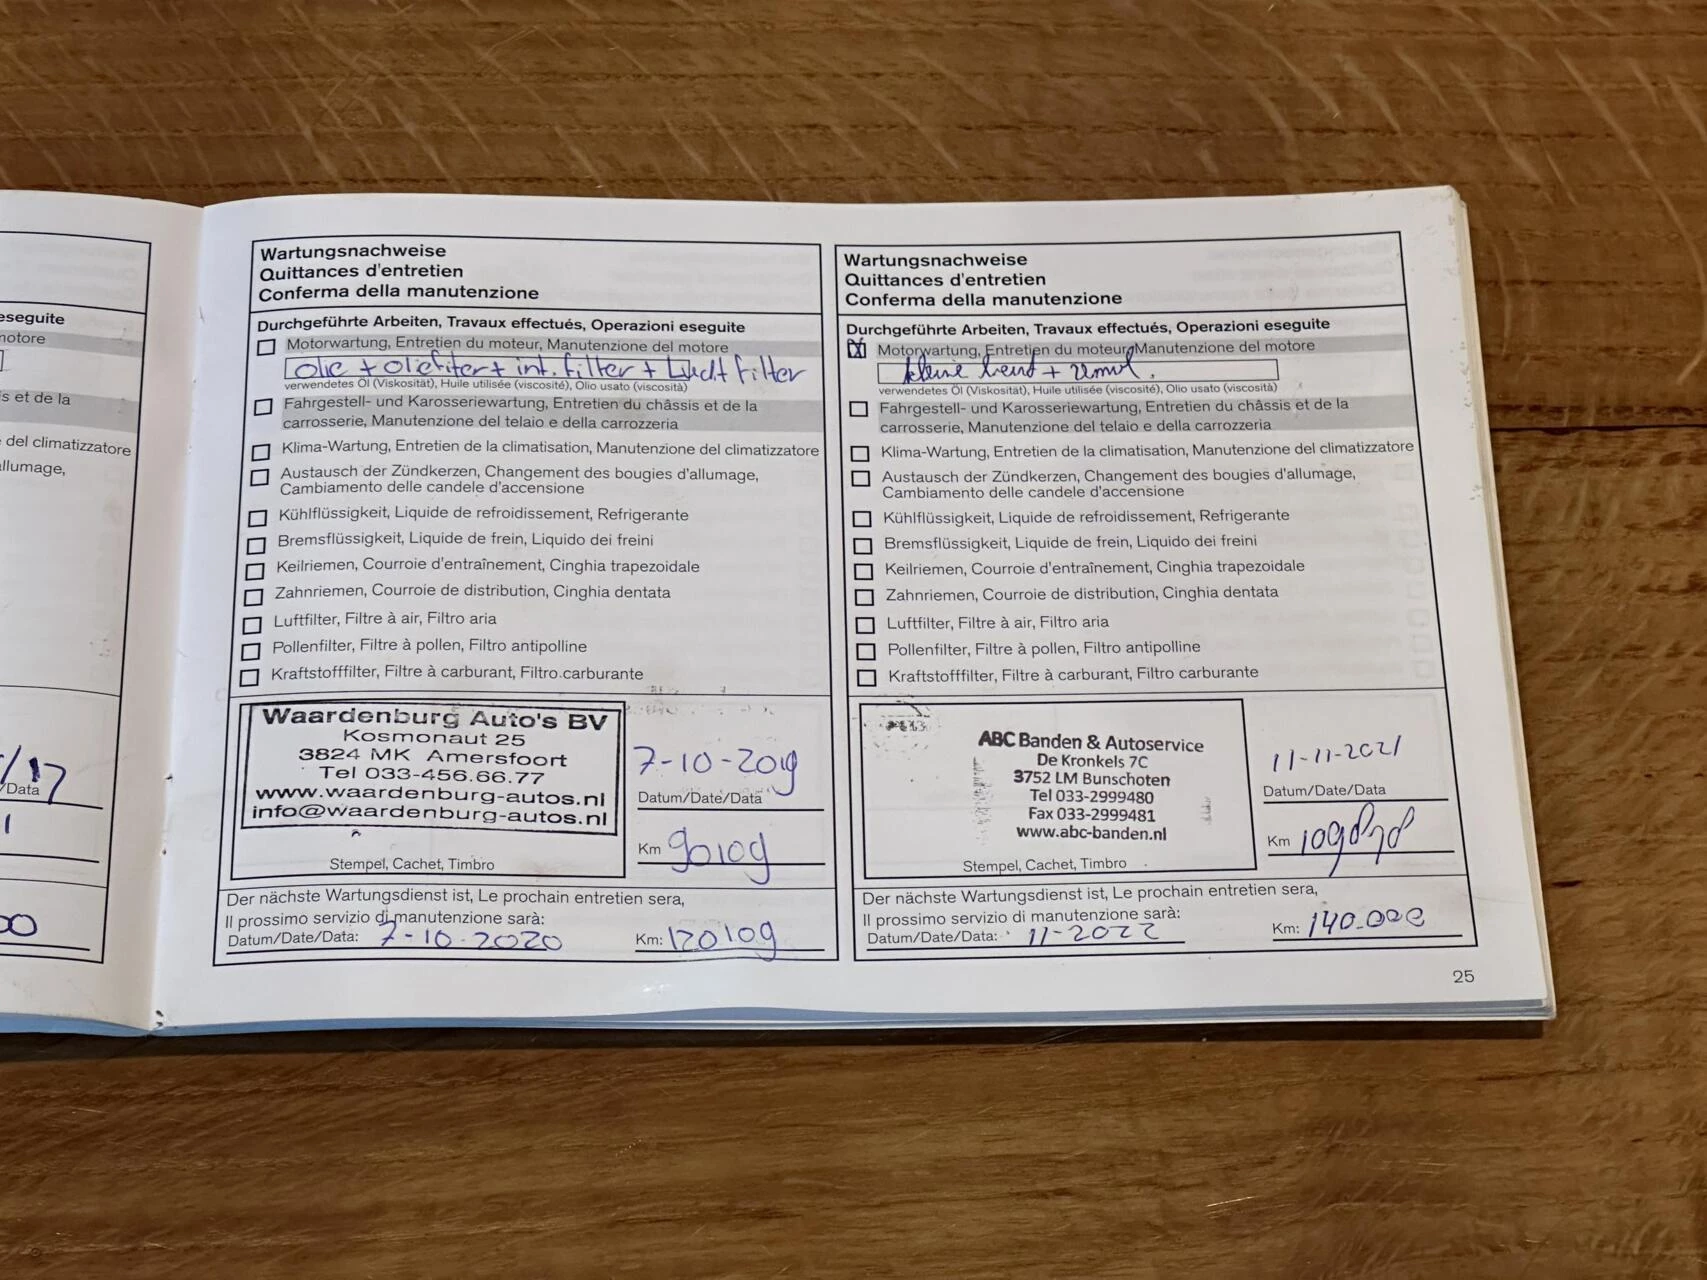 eseguite
motore
s et de la
del climatizzatore
allumage,
/17
/Data
Wartungsnachweise
Quittances d'entretien
Conferma della manutenzione
Durchgeführte Arbeiten, Travaux effectués, Operazioni eseguite
Motorwartung, Entretien du moteur, Manutenzione del motore
olie + oliefilter + int. filter + Lucht filter
verwendetes Öl (Viskosität), Huile utilisée (viscosité), Olio usato (viscosità)
Fahrgestell- und Karosseriewartung, Entretien du châssis et de la
carrosserie, Manutenzione del telaio e della carrozzeria
Klima-Wartung, Entretien de la climatisation, Manutenzione del climatizzatore
Austausch der Zündkerzen, Changement des bougies d'allumage,
Cambiamento delle candele d'accensione
Kühlflüssigkeit, Liquide de refroidissement, Refrigerante
Bremsflüssigkeit, Liquide de frein, Liquido dei freini
Keilriemen, Courroie d'entraînement, Cinghia trapezoidale
Zahnriemen, Courroie de distribution, Cinghia dentata
Luftfilter, Filtre à air, Filtro aria
Pollenfilter, Filtre à pollen, Filtro antipolline
Kraftstofffilter, Filtre à carburant, Filtro carburante
Waardenburg Auto's BV
Kosmonaut 25
3824 MK Amersfoort
Tel 033-456.66.77
www.waardenburg-autos.nl
info@waardenburg-autos.nl
Stempel, Cachet, Timbro
7-10-2019
Datum/Date/Data
Km 90109
Der nächste Wartungsdienst ist, Le prochain entretien sera,
Il prossimo servizio di manutenzione sarà:
Datum/Date/Data: 7-10-2020 Km: 120109
Wartungsnachweise
Quittances d'entretien
Conferma della manutenzione
Durchgeführte Arbeiten, Travaux effectués, Operazioni eseguite
Motorwartung, Entretien du moteur, Manutenzione del motore
kleine beurt +
verwendetes Öl (Viskosität), Huile utilisée (viscosité), Olio usato (viscosità)
Fahrgestell- und Karosseriewartung, Entretien du châssis et de la
carrosserie, Manutenzione del telaio e della carrozzeria
Klima-Wartung, Entretien de la climatisation, Manutenzione del climatizzatore
Austausch der Zündkerzen, Changement des bougies d'allumage,
Cambiamento delle candele d'accensione
Kühlflüssigkeit, Liquide de refroidissement, Refrigerante
Bremsflüssigkeit, Liquide de frein, Liquido dei freini
Keilriemen, Courroie d'entraînement, Cinghia trapezoidale
Zahnriemen, Courroie de distribution, Cinghia dentata
Luftfilter, Filtre à air, Filtro aria
Pollenfilter, Filtre à pollen, Filtro antipolline
Kraftstofffilter, Filtre à carburant, Filtro carburante
ABC Banden & Autoservice
De Kronkels 7C
3752 LM Bunschoten
Tel 033-2999480
Fax 033-2999481
www.abc-banden.nl
Stempel, Cachet, Timbro
11-11-2021
Datum/Date/Data
Km 109878
Der nächste Wartungsdienst ist, Le prochain entretien sera,
Il prossimo servizio di manutenzione sarà:
Datum/Date/Data: 11-2022 Km: 140.000
25